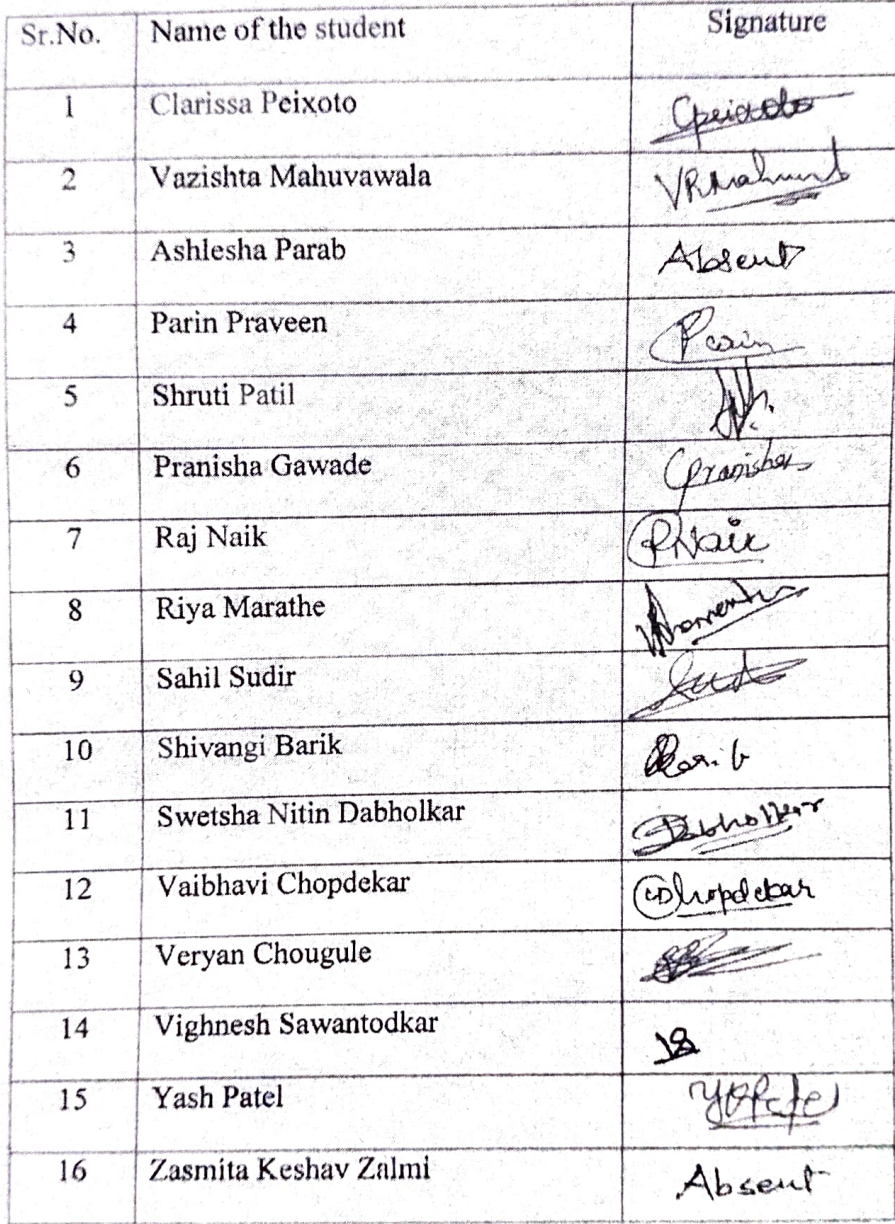 Sr.No. Name of the student Signature
1 Clarissa Peixoto Cpeixoto
2 Vazishta Mahuvawala
3 Ashlesha Parab Absent
4 Parin Praveen
5 Shruti Patil
6 Pranisha Gawade Pranisha
7 Raj Naik RNaik
8 Riya Marathe
9 Sahil Sudir
10 Shivangi Barik
11 Swetsha Nitin Dabholkar Dabholkar
12 Vaibhavi Chopdekar Chopdekar
13 Veryan Chougule
14 Vighnesh Sawantodkar
15 Yash Patel
16 Zasmita Keshav Zalmi Absent